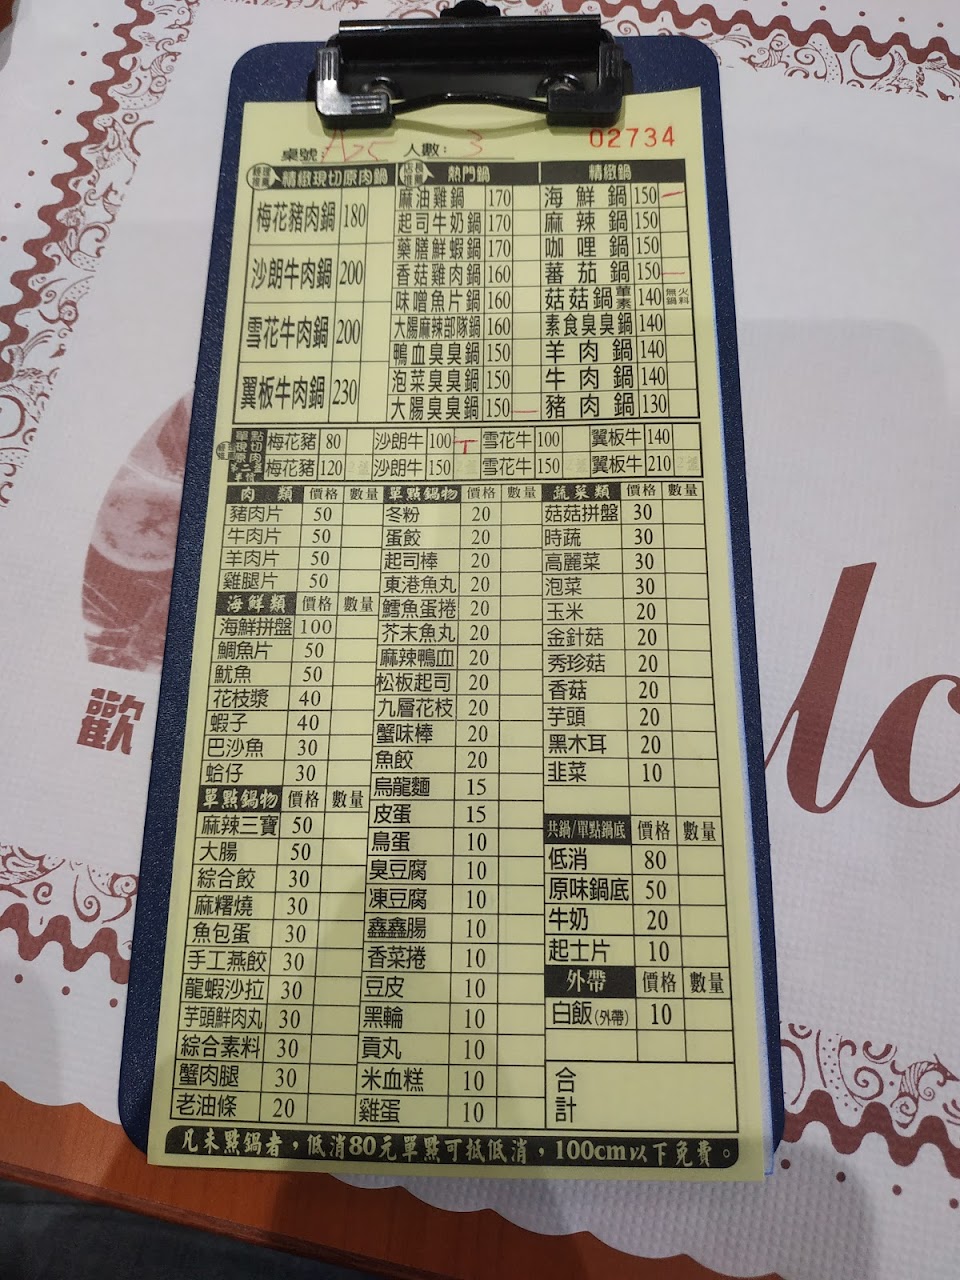 02734
桌號: 人數: 3
精緻現切原肉鍋
梅花豬肉鍋 180
沙朗牛肉鍋 200
雪花牛肉鍋 200
翼板牛肉鍋 230
熱門鍋
麻油雞鍋 170
起司牛奶鍋 170
藥膳鮮蝦鍋 170
香菇雞肉鍋 160
味噌魚片鍋 160
大腸麻辣部隊鍋 160
鴨血臭臭鍋 150
泡菜臭臭鍋 150
大腸臭臭鍋 150
精緻鍋
海鮮鍋 150
麻辣鍋 150
咖哩鍋 150
蕃茄鍋 150
菇菇鍋 葷素 140 無火鍋料
素食臭臭鍋 140
羊肉鍋 140
牛肉鍋 140
豬肉鍋 130
單點現切原肉
梅花豬 80 沙朗牛 100 雪花牛 100 翼板牛 140
梅花豬 120 沙朗牛 150 雪花牛 150 翼板牛 210
肉類 價格 數量
豬肉片 50
牛肉片 50
羊肉片 50
雞腿片 50
海鮮類 價格 數量
海鮮拼盤 100
鯛魚片 50
魷魚 50
花枝漿 40
蝦子 40
巴沙魚 30
蛤仔 30
單點鍋物 價格 數量
麻辣三寶 50
大腸 50
綜合餃 30
麻糬燒 30
魚包蛋 30
手工燕餃 30
龍蝦沙拉 30
芋頭鮮肉丸 30
綜合素料 30
蟹肉腿 30
老油條 20
單點鍋物 價格 數量
冬粉 20
蛋餃 20
起司棒 20
東港魚丸 20
鱈魚蛋捲 20
芥末魚丸 20
麻辣鴨血 20
松板起司 20
九層花枝 20
蟹味棒 20
魚餃 20
烏龍麵 15
皮蛋 15
鳥蛋 10
臭豆腐 10
凍豆腐 10
鑫鑫腸 10
香菜捲 10
豆皮 10
黑輪 10
貢丸 10
米血糕 10
雞蛋 10
蔬菜類 價格 數量
菇菇拼盤 30
時蔬 30
高麗菜 30
泡菜 30
玉米 20
金針菇 20
秀珍菇 20
香菇 20
芋頭 20
黑木耳 20
韭菜 10
共鍋/單點鍋底 價格 數量
低消 80
原味鍋底 50
牛奶 20
起士片 10
外帶 價格 數量
白飯(外帶) 10
合計
凡未點鍋者，低消80元單點可抵低消，100cm以下免費。
歡